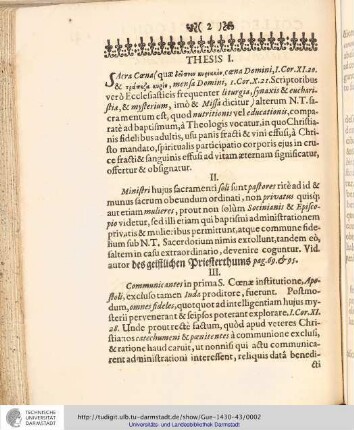 2
THESIS I.
SAcra Cœna (quæ δεῖπνον κυριακὸν, cœna Domini, I. Cor. XI. 20.
& τράπεζα κυρίου, mensa Domini, 1. Cor. X. 21. Scriptoribus
verò Ecclesiasticis frequenter liturgia, synaxis & euchari-
stia, & mysterium, imò & Missa dicitur) alterum N.T. sa-
cramentum est, quod nutritionis vel educationis, compa-
ratè ad baptismum, à Theologis vocatur, in quo Christia-
nis fidelibus adultis, usu panis fracti & vini effusi, à Chri-
sto mandato, spiritualis participatio corporis ejus in cru-
ce fracti & sanguinis effusi ad vitam æternam significatur,
offertur & obsignatur.
II.
Ministri hujus sacramenti soli sunt pastores ritè ad id &
munus sacrum obeundum ordinati, non privatus quisq;
aut etiam mulieres, prout non solùm Socinianis & Episco-
pio videtur, sed illi etiam qui baptismi administrationem
privatis & mulieribus permittunt, atque commune fide-
lium sub N.T. Sacerdotium nimis extollunt, tandem eò,
saltem in casu extraordinario, devenire coguntur. Vid.
autor des geistlichen Priesterthums pag. 69. & 95.
III.
Communicantes in prima S. Cœnæ institutione, Apo-
stoli, excluso tamen Juda proditore, fuerunt. Postmo-
dum, omnes fideles, quotquot ad intelligentiam hujus my-
sterii pervenerant & seipsos poterant explorare. I. Cor. XI.
28. Unde prout rectè factum, quòd apud veteres Chri-
stianos catechumeni & pœnitentes à communione exclusi,
& ratione haud caruit, ut nonnisi qui actu communica-
rent administrationi interessent, reliquis datâ benedi-
cti
TECHNISCHE
UNIVERSITÄT
DARMSTADT
http://tudigit.ulb.tu-darmstadt.de/show/Gue-1430-43/0002
Universitäts- und Landesbibliothek Darmstadt